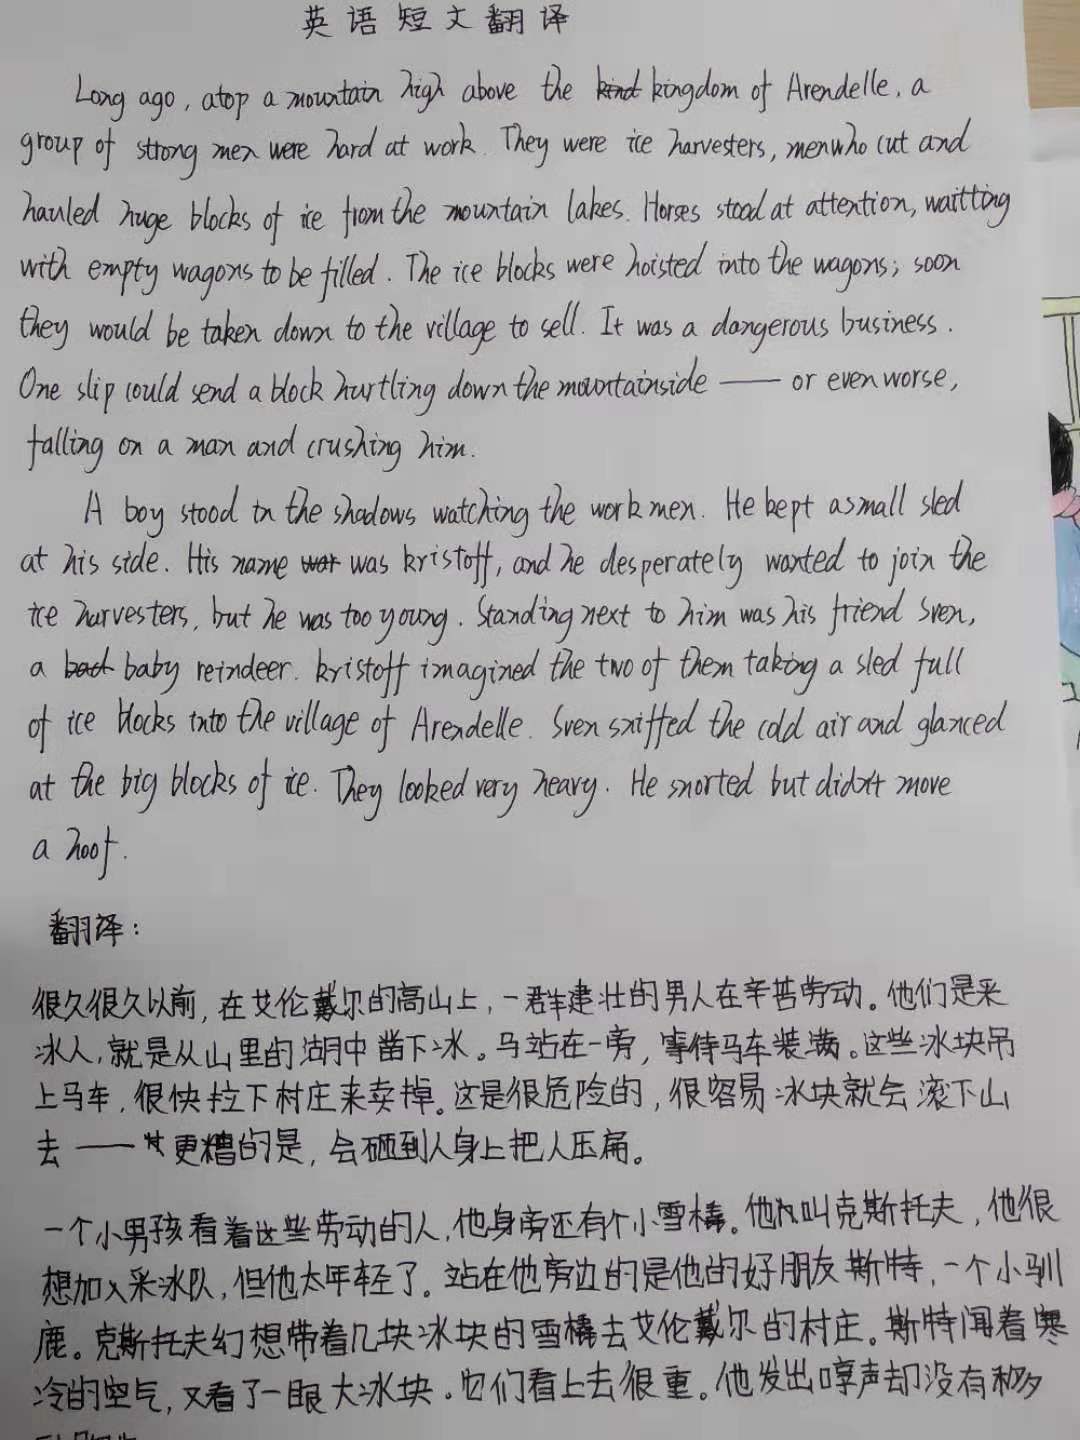 英语短文翻译
Long ago, atop a mountain high above the kind kingdom of Arendelle, a
group of strong men were hard at work. They were ice harvesters, men who cut and
hauled huge blocks of ice from the mountain lakes. Horses stood at attention, waitting
with empty wagons to be filled. The ice blocks were hoisted into the wagons; soon
they would be taken down to the village to sell. It was a dangerous business.
One slip could send a block hurtling down the mountainside —— or even worse,
falling on a man and crushing him.
A boy stood in the shadows watching the work men. He kept a small sled
at his side. His name was kristoff, and he desperately wanted to join the
ice harvesters, but he was too young. Standing next to him was his friend Sven,
a baby reindeer. kristoff imagined the two of them taking a sled full
of ice blocks into the village of Arendelle. Sven sniffed the cold air and glanced
at the big blocks of ice. They looked very heavy. He snorted but didn't move
a hoof.
翻译：
很久很久以前，在艾伦戴尔的高山上，一群建壮的男人在辛苦劳动。他们是采
冰人，就是从山里的湖中凿下冰。马站在一旁，等待马车装满。这些冰块吊
上马车，很快拉下村庄来卖掉。这是很危险的，很容易冰块就会滚下山
去——更糟的是，会砸到人身上把人压扁。
一个小男孩看着这些劳动的人，他身旁还有个小雪橇。他叫克斯托夫，他很
想加入采冰队，但他太年轻了。站在他旁边的是他的好朋友斯特，一个小驯
鹿。克斯托夫幻想带着几块冰块的雪橇去艾伦戴尔的村庄。斯特闻着寒
冷的空气，又看了一眼大冰块。它们看上去很重。他发出哼声却没有移